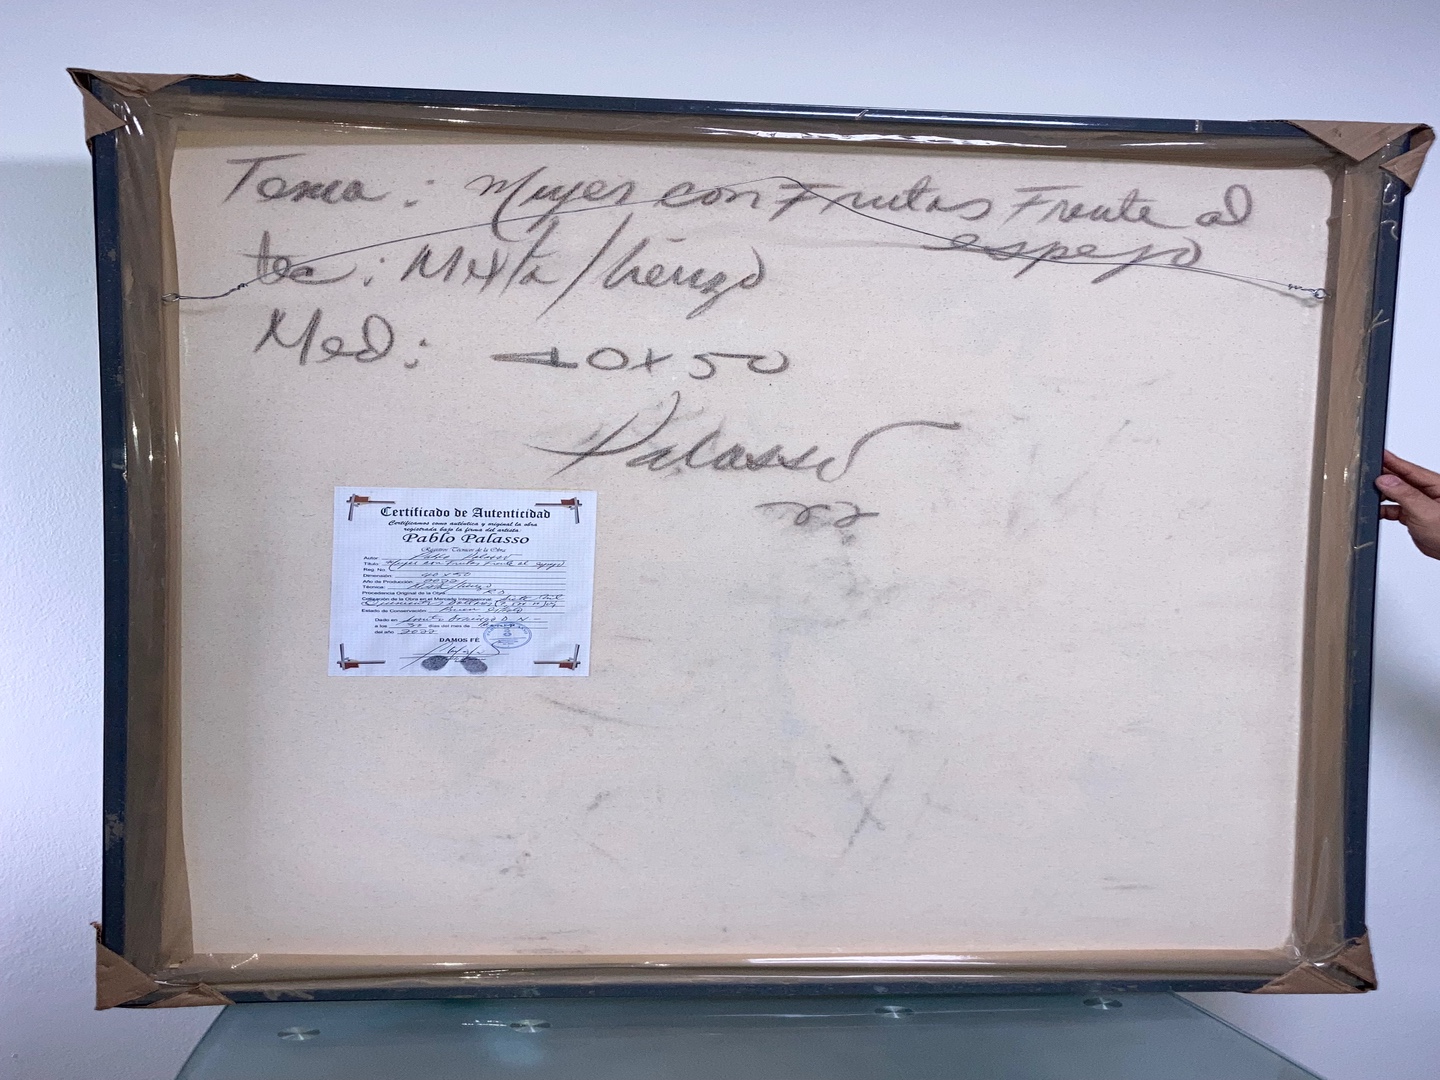 Tema: Mujer con Frutas Frente al
espejo
tec: Mixta/Lienzo
Med: 40x50
Palasso
22
Certificado de Autenticidad
Certificamos como auténtica y original la obra
registrada bajo la firma del artista:
Pablo Palasso
Registros Técnicos de la Obra
Autor: Pablo Palasso
Título: Mujer con Frutas Frente al espejo
Reg. No.
Dimensión: 40x50
Año de Producción: 2022
Técnica: Mixta/Lienzo
Procedencia Original de la Obra R D
Cotización de la Obra en el Mercado Internacional: Siete Mil
Estado de Conservación: Buen Estado
Dado en Santo Domingo D N
a los días del mes de
del año 2022
DAMOS FÉ